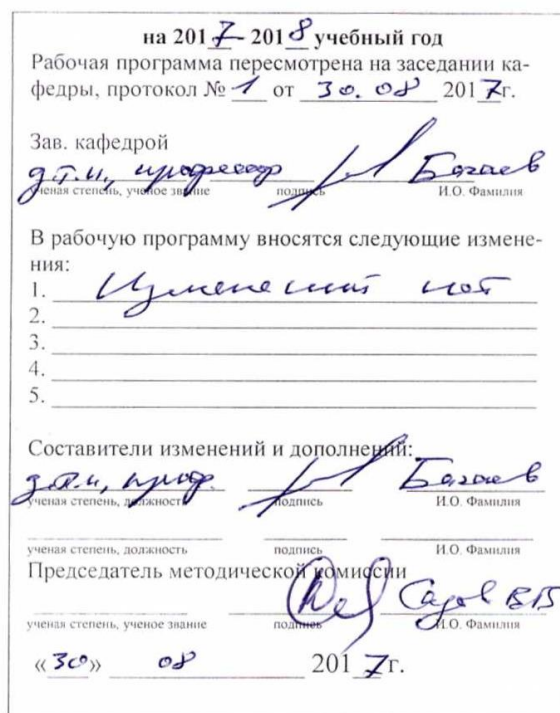 на 2017 – 2018 учебный год
Рабочая программа пересмотрена на заседании ка-
федры, протокол № 1 от 30.08 2017г.
Зав. кафедрой
д.т.н., профессор Багаев
ученая степень, ученое звание подпись И.О. Фамилия
В рабочую программу вносятся следующие измене-
ния:
1. Изменений нет
2.
3.
4.
5.
Составители изменений и дополнений:
д.т.н., проф. Багаев
ученая степень, должность подпись И.О. Фамилия
ученая степень, должность подпись И.О. Фамилия
Председатель методической комиссии
ученая степень, ученое звание подпись И.О. Фамилия
«30» 08 2017г.